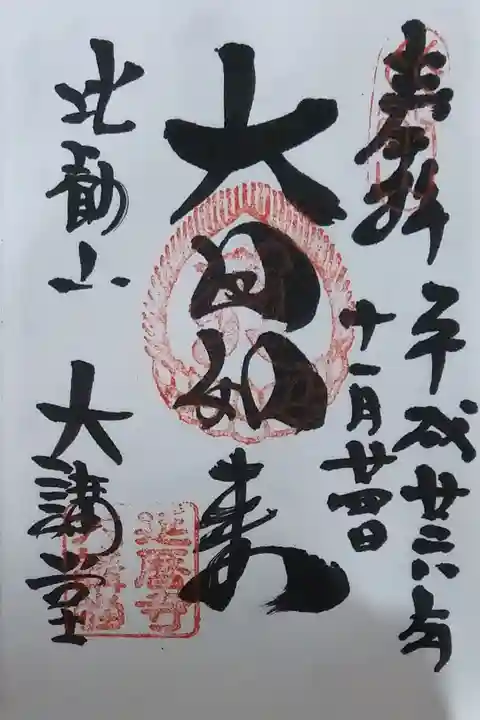 奉拝
平成廿六年
十一月廿四日
大日如来
比叡山
大講堂
延暦寺